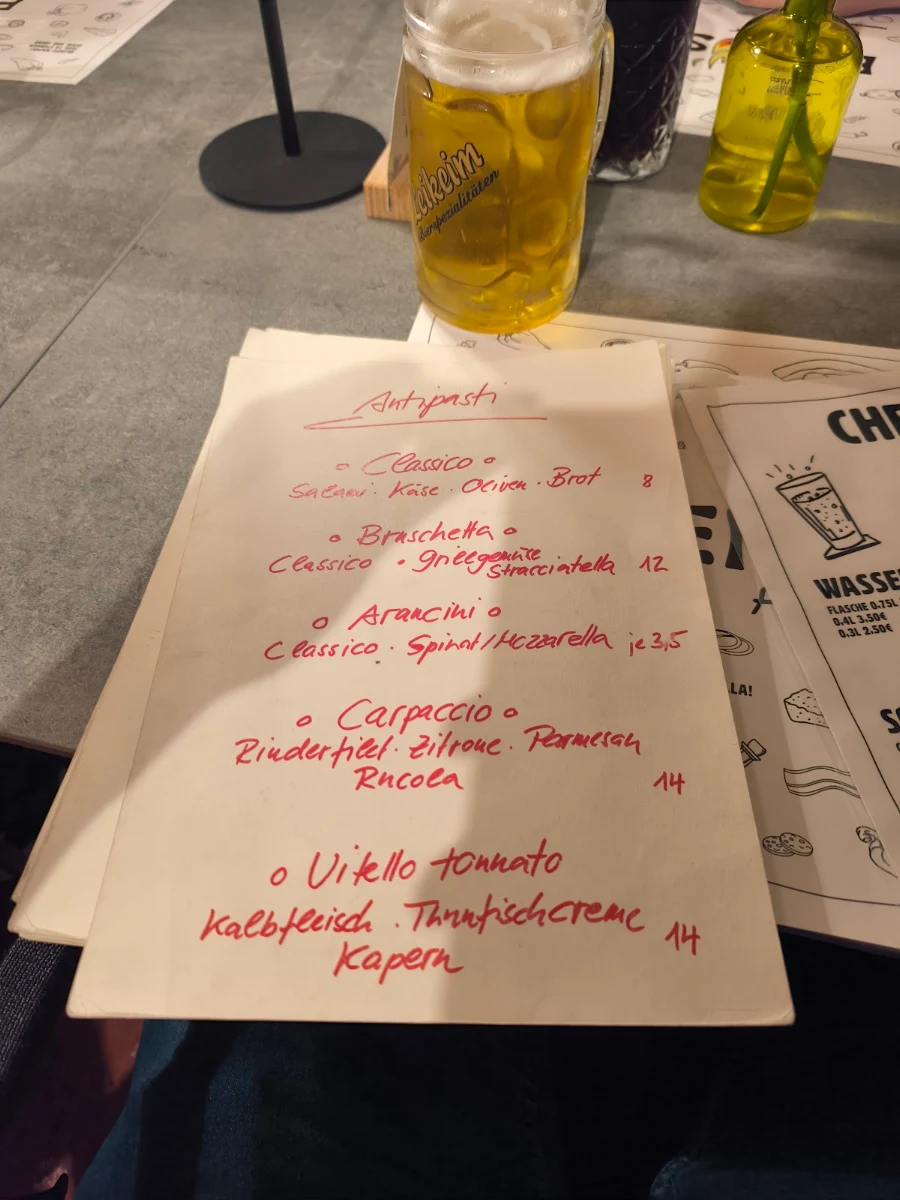 Leikeim
Bierspezialitäten
Antipasti
Classico
Salami · Käse · Oliven · Brot 8
Bruschetta
Classico · Grillgemüse
Stracciatella 12
Arancini
Classico · Spinat/Mozzarella je 3,5
Carpaccio
Rinderfilet · Zitrone · Parmesan
Rucola 14
Vitello tonnato
Kalbfleisch · Thunfischcreme
Kapern 14
CHE
WASSE
FLASCHE 0.75L
0.4L 3.50€
0.3L 2.50€
LA!